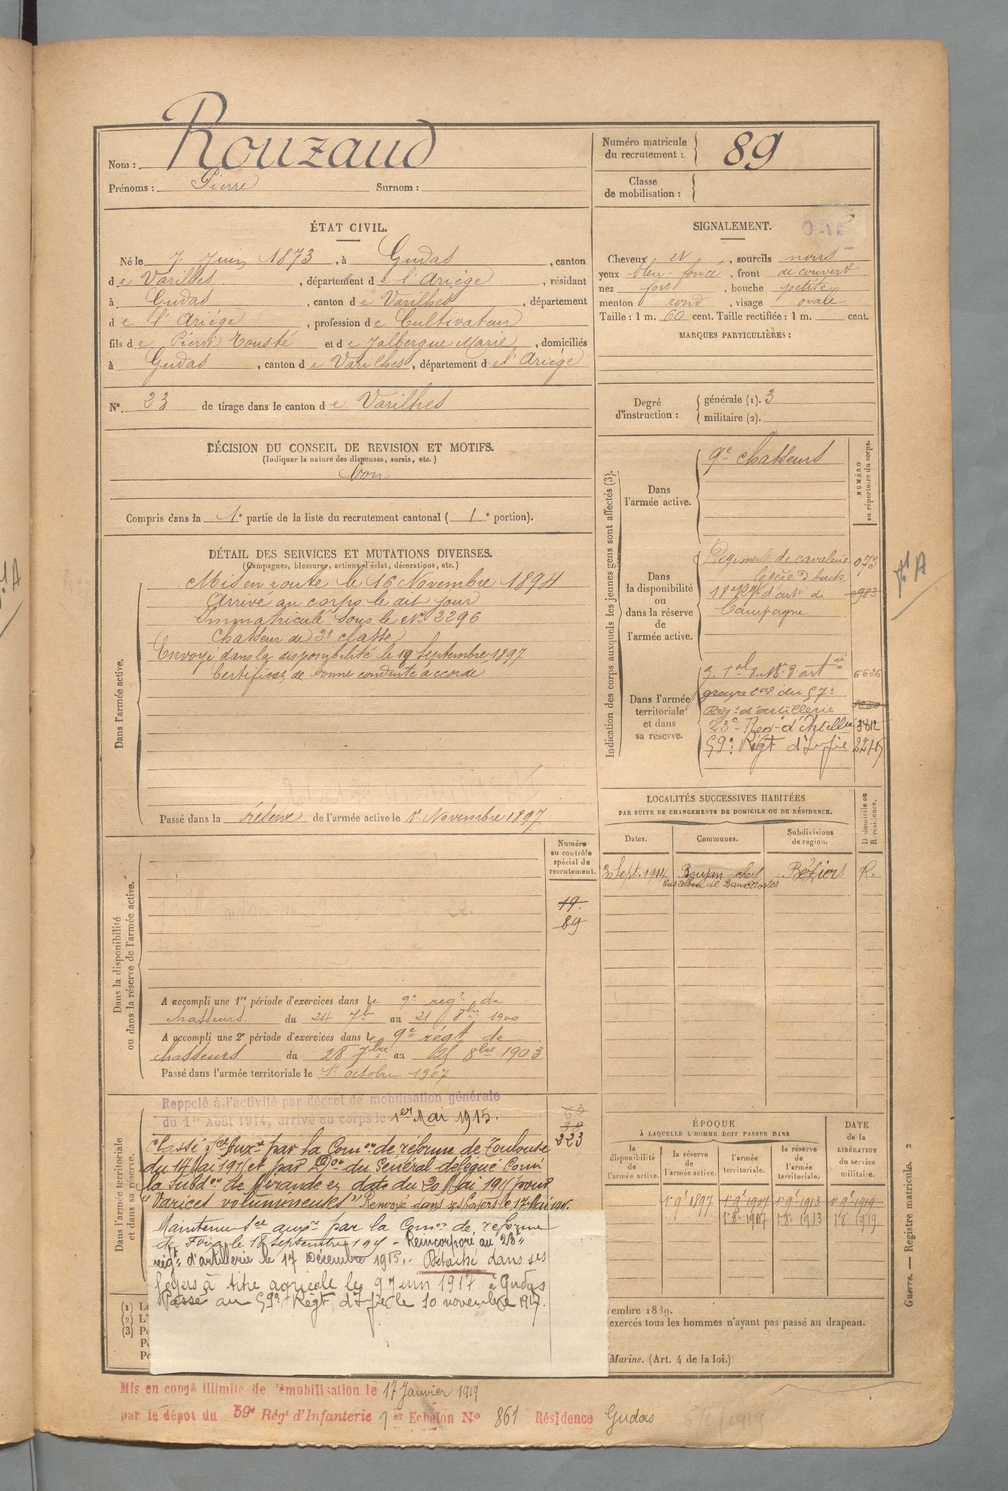 Nom : Rouzaud
Prénoms : Pierre Surnom :
Numéro matricule du recrutement : 89
Classe de mobilisation :
ÉTAT CIVIL.
Né le 7 Juin 1873, à Gudas, canton
de Varilhes, département de l'Ariège, résidant
à Gudas, canton de Varilhes, département
de l'Ariège, profession de Cultivateur
fils de Pierre Tousté et de Jalbergue Marie, domiciliés
à Gudas, canton de Varilhes, département de l'Ariège
N° 23 de tirage dans le canton de Varilhes
SIGNALEMENT.
Cheveux et, sourcils noirs
yeux bleu foncé, front découvert
nez fort, bouche petite
menton rond, visage ovale
Taille : 1 m. 60 cent. Taille rectifiée : 1 m. cent.
MARQUES PARTICULIÈRES :
Degré d'instruction : générale (1). 3
militaire (2).
DÉCISION DU CONSEIL DE REVISION ET MOTIFS.
(Indiquer la nature des dispenses, sursis, etc.)
bon
Compris dans la 1e partie de la liste du recrutement cantonal ( 1e portion).
DÉTAIL DES SERVICES ET MUTATIONS DIVERSES.
(Campagnes, blessures, actions d'éclat, décorations, etc.)
Dans l'armée active.
Mis en route le 16 Novembre 1894
Arrivé au corps le dit jour
Immatriculé sous le N° 3296
Chasseur de 2e classe
Envoyé dans la disponibilité le 19 Septembre 1897
Certificat de bonne conduite accordé
Passé dans la réserve de l'armée active le 1er Novembre 1897
Indication des corps auxquels les jeunes gens sont affectés (3).
NUMÉRO au répertoire du corps.
Dans l'armée active.
9e chasseurs
Dans la disponibilité ou dans la réserve de l'armée active.
Régiments de cavalerie
légère
073
18e Rgt d'artie de
Campagne
Dans l'armée territoriale et dans sa réserve.
groupe tal du 57e
Rég. d'artillerie
23e Reg. d'Artillie
59e Régt d'Infie
LOCALITÉS SUCCESSIVES HABITÉES
PAR SUITE DE CHANGEMENTS DE DOMICILE OU DE RÉSIDENCE.
Dates. Communes. Subdivisions de région. D domicile ou R résidence.
Sept. 1904 Boujan Béziers R.
Dans la disponibilité ou dans la réserve de l'armée active.
Numéro au contrôle spécial du recrutement.
19.
89
A accompli une 1re période d'exercices dans le 9e régt de
chasseurs du 24 7bre au 21 8bre 1900
A accompli une 2e période d'exercices dans le 9e régt de
chasseurs du 28 7bre au 25 8bre 1903
Passé dans l'armée territoriale le 1er octobre 1907
Dans l'armée territoriale et dans sa réserve.
Rappelé à l'activité par décret de mobilisation générale
du 1er Août 1914, arrivé au corps le 1er Mai 1915.
223
Classé Sce Auxre par la Comon de réforme de Toulouse
du 14 Mai 1915 et par Don du Général délégué Comt
la Subdon de Mirande en date du 20 Mai 1915 pour
"Varices volumineuses" Renvoyé dans ses foyers le 17 Mai 1915.
Maintenu Sce auxre par la Comon de réforme
de Foix le 18 septembre 1915 - Réincorporé au 23e
régt d'artillerie le 17 Décembre 1915. - Détaché dans ses
foyers à titre agricole le 9 Juin 1917 à Gudas
Passé au 59e Régt d'Infie le 10 novembre 1917.
ÉPOQUE
À LAQUELLE L'HOMME DOIT PASSER DANS
la disponibilité de l'armée active. la réserve de l'armée active. l'armée territoriale. la réserve de l'armée territoriale. DATE de la LIBÉRATION du service militaire.
1er 9bre 1897 1er 9bre 1907 1er 9bre 1913 1er 9bre 1919
1er 8bre 1907 1er 8bre 1913 1er 8bre 1919
(1)
(2)
(3)
embre 1889.
exercés tous les hommes n'ayant pas passé au drapeau.
Marine. (Art. 4 de la loi.)
Guerre. — Registre matricule. 2
Mis en congé illimité de démobilisation le 17 Janvier 1919
par le dépot du 59e Régt d'Infanterie 1er Echelon N° 861 Résidence Gudas